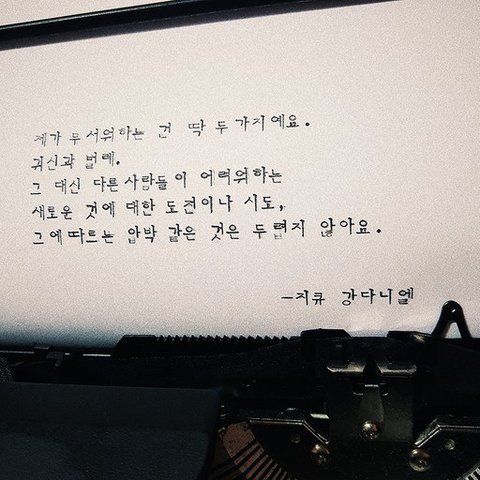 제가 무서워하는 건 딱 두가지예요.
귀신과 벌레.
그 대신 다른사람들이 어려워하는
새로운 것에 대한 도전이나 시도,
그에따르는 압박 같은 것은 두렵지 않아요.
-지큐 강다니엘